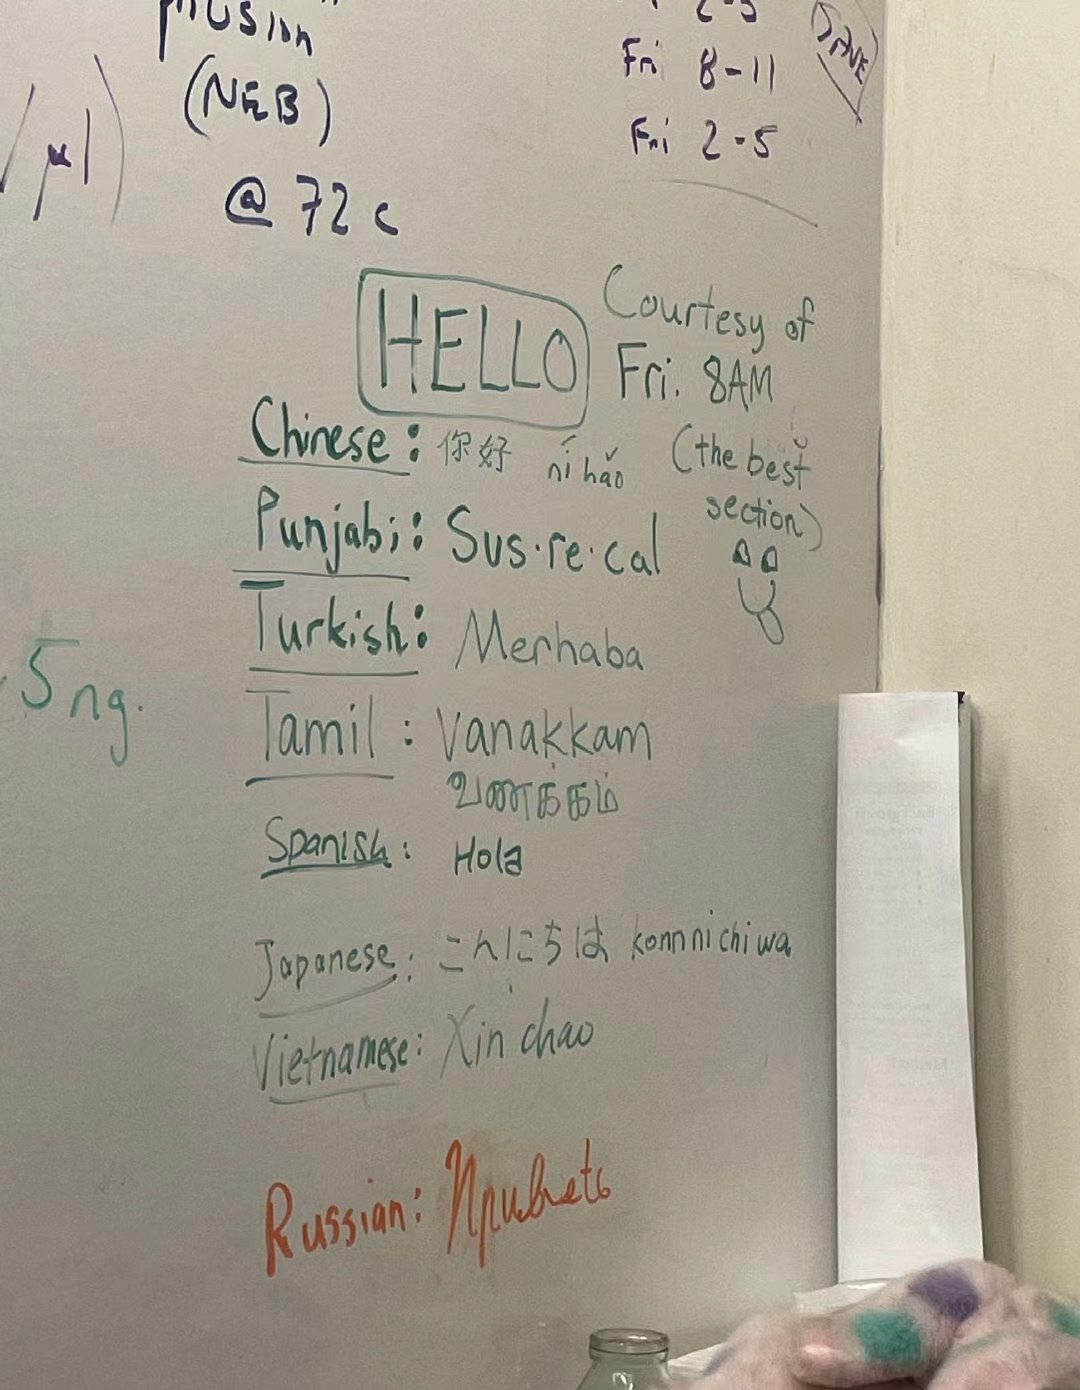 (NEB)
@ 72 c
/µl)
2-5
Fri 8-11
Fri 2-5
SAVE
HELLO
Courtesy of
Fri. 8AM
(the best
section)
Chinese: 你好 ní hǎo
Punjabi: Sus·re·cal
Turkish: Merhaba
Tamil: Vanakkam
வணக்கம்
Spanish: Hola
Japanese: こんにちは konnnichiwa
Vietnamese: Xin chao
Russian: Приветь
5ng.